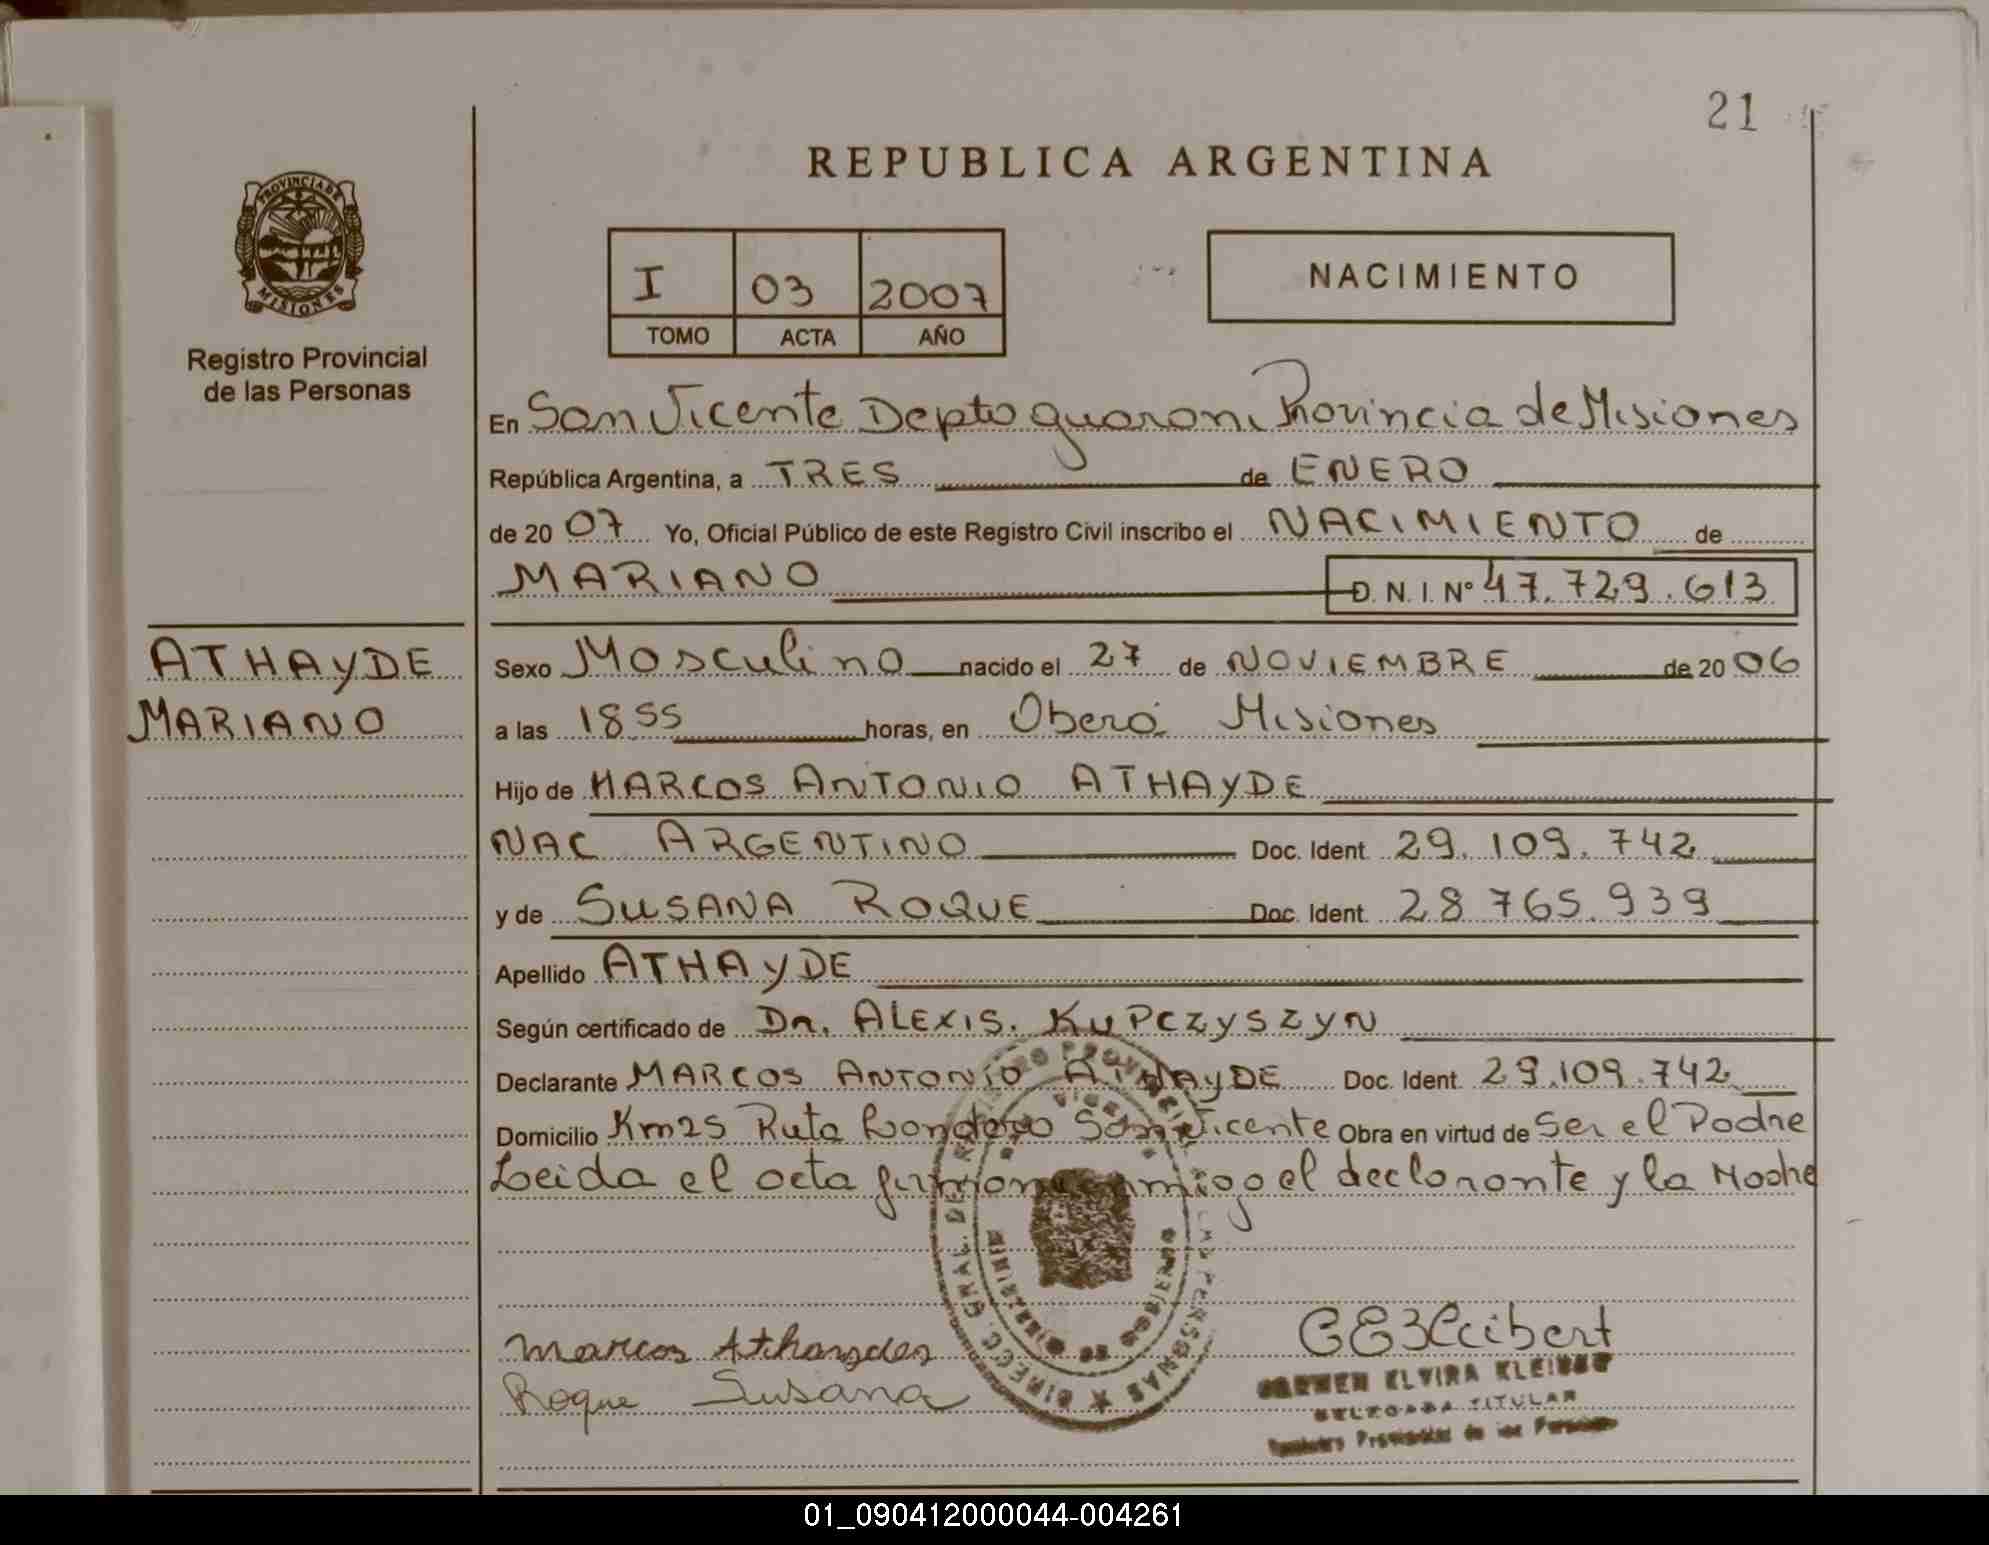 21
REPUBLICA ARGENTINA
PROVINCIA DE
MISIONES
Registro Provincial
de las Personas
I 03 2007
TOMO ACTA AÑO
NACIMIENTO
En San Vicente Depto guarani Provincia de Misiones
República Argentina, a TRES de ENERO
de 20 07 Yo, Oficial Público de este Registro Civil inscribo el NACIMIENTO de
MARIANO D. N. I. Nº 47.729.613
ATHAYDE
MARIANO
Sexo Masculino nacido el 27 de NOVIEMBRE de 20 06
a las 18 55 horas, en Oberá Misiones
Hijo de MARCOS ANTONIO ATHAYDE
NAC ARGENTINO Doc. Ident. 29.109.742
y de SUSANA ROQUE Doc. Ident. 28 765.939
Apellido ATHAYDE
Según certificado de Dr. ALEXIS. KUPCZYSZYN
Declarante MARCOS ANTONIO ATHAYDE Doc. Ident. 29.109.742
Domicilio Km25 Ruta San Vicente Obra en virtud de Ser el Padre
Leida el acta el declarante y la Madre
DIRECC. GRAL. DE PERSONAS
Marcos
Roque Susana
CARMEN ELVIRA
DELEGADA TITULAR
Registro Provincial de las Personas
01_090412000044-004261